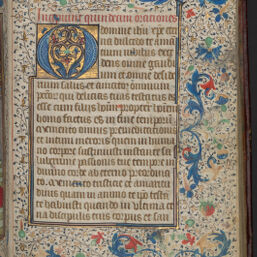 Incipiunt quindecim orationes
domine ihu xpe eter
na dulcedo te ama
cium iubilus exce
dens omne gaudi
um et omne deside
rium salus et amator omnium
peccator qui delicias tuas testatus es
esse cum filiis hoim propter hoiem
homo factus es in fine temporis
memento omnis premeditationis
et intimi meroris quem in huma
no corpore sustinuisti instante sa
luberrime passionis tue tempore in
divino corde ab eterno preordina
to. Memento tristicie et amaritu
dinis quam in animo te ipo teste
habuisti quando in ultima ce
na discipulis tuis corpus et san